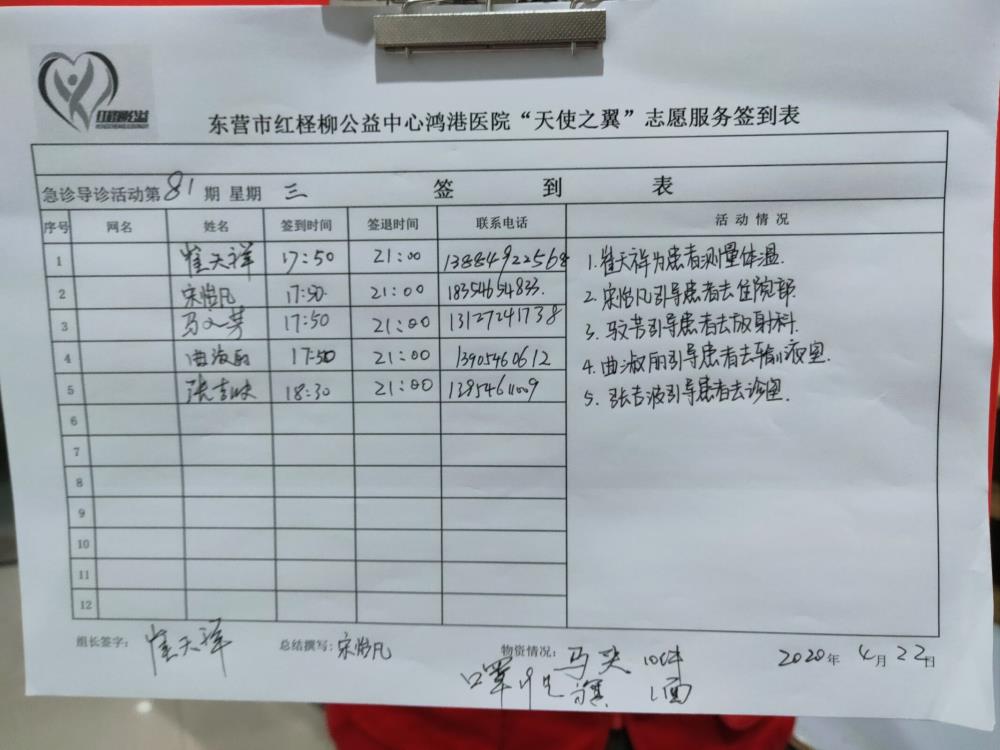 红柽柳公益
东营市红柽柳公益中心鸿港医院“天使之翼”志愿服务签到表
急诊导诊活动第81期 星期三 签到表
序号 网名 姓名 签到时间 签退时间 联系电话 活动情况
1 崔天祥 17:50 21:00 13884922568
2 宋怡凡 17:50 21:00 18354654833
3 马文芳 17:50 21:00 13127241738
4 曲淑丽 17:50 21:00 13905460612
5 张吉波 18:30 21:00
6
7
8
9
10
11
12
1.崔天祥为患者测量体温.
2.宋怡凡引导患者去住院部.
3.马文芳引导患者去放射科.
4.曲淑丽引导患者去输液室.
5.张吉波引导患者去诊室.
组长签字:崔天祥 总结撰写:宋怡凡 物资情况:马夹 10件
口罩 旗 1面
2020年4月22日